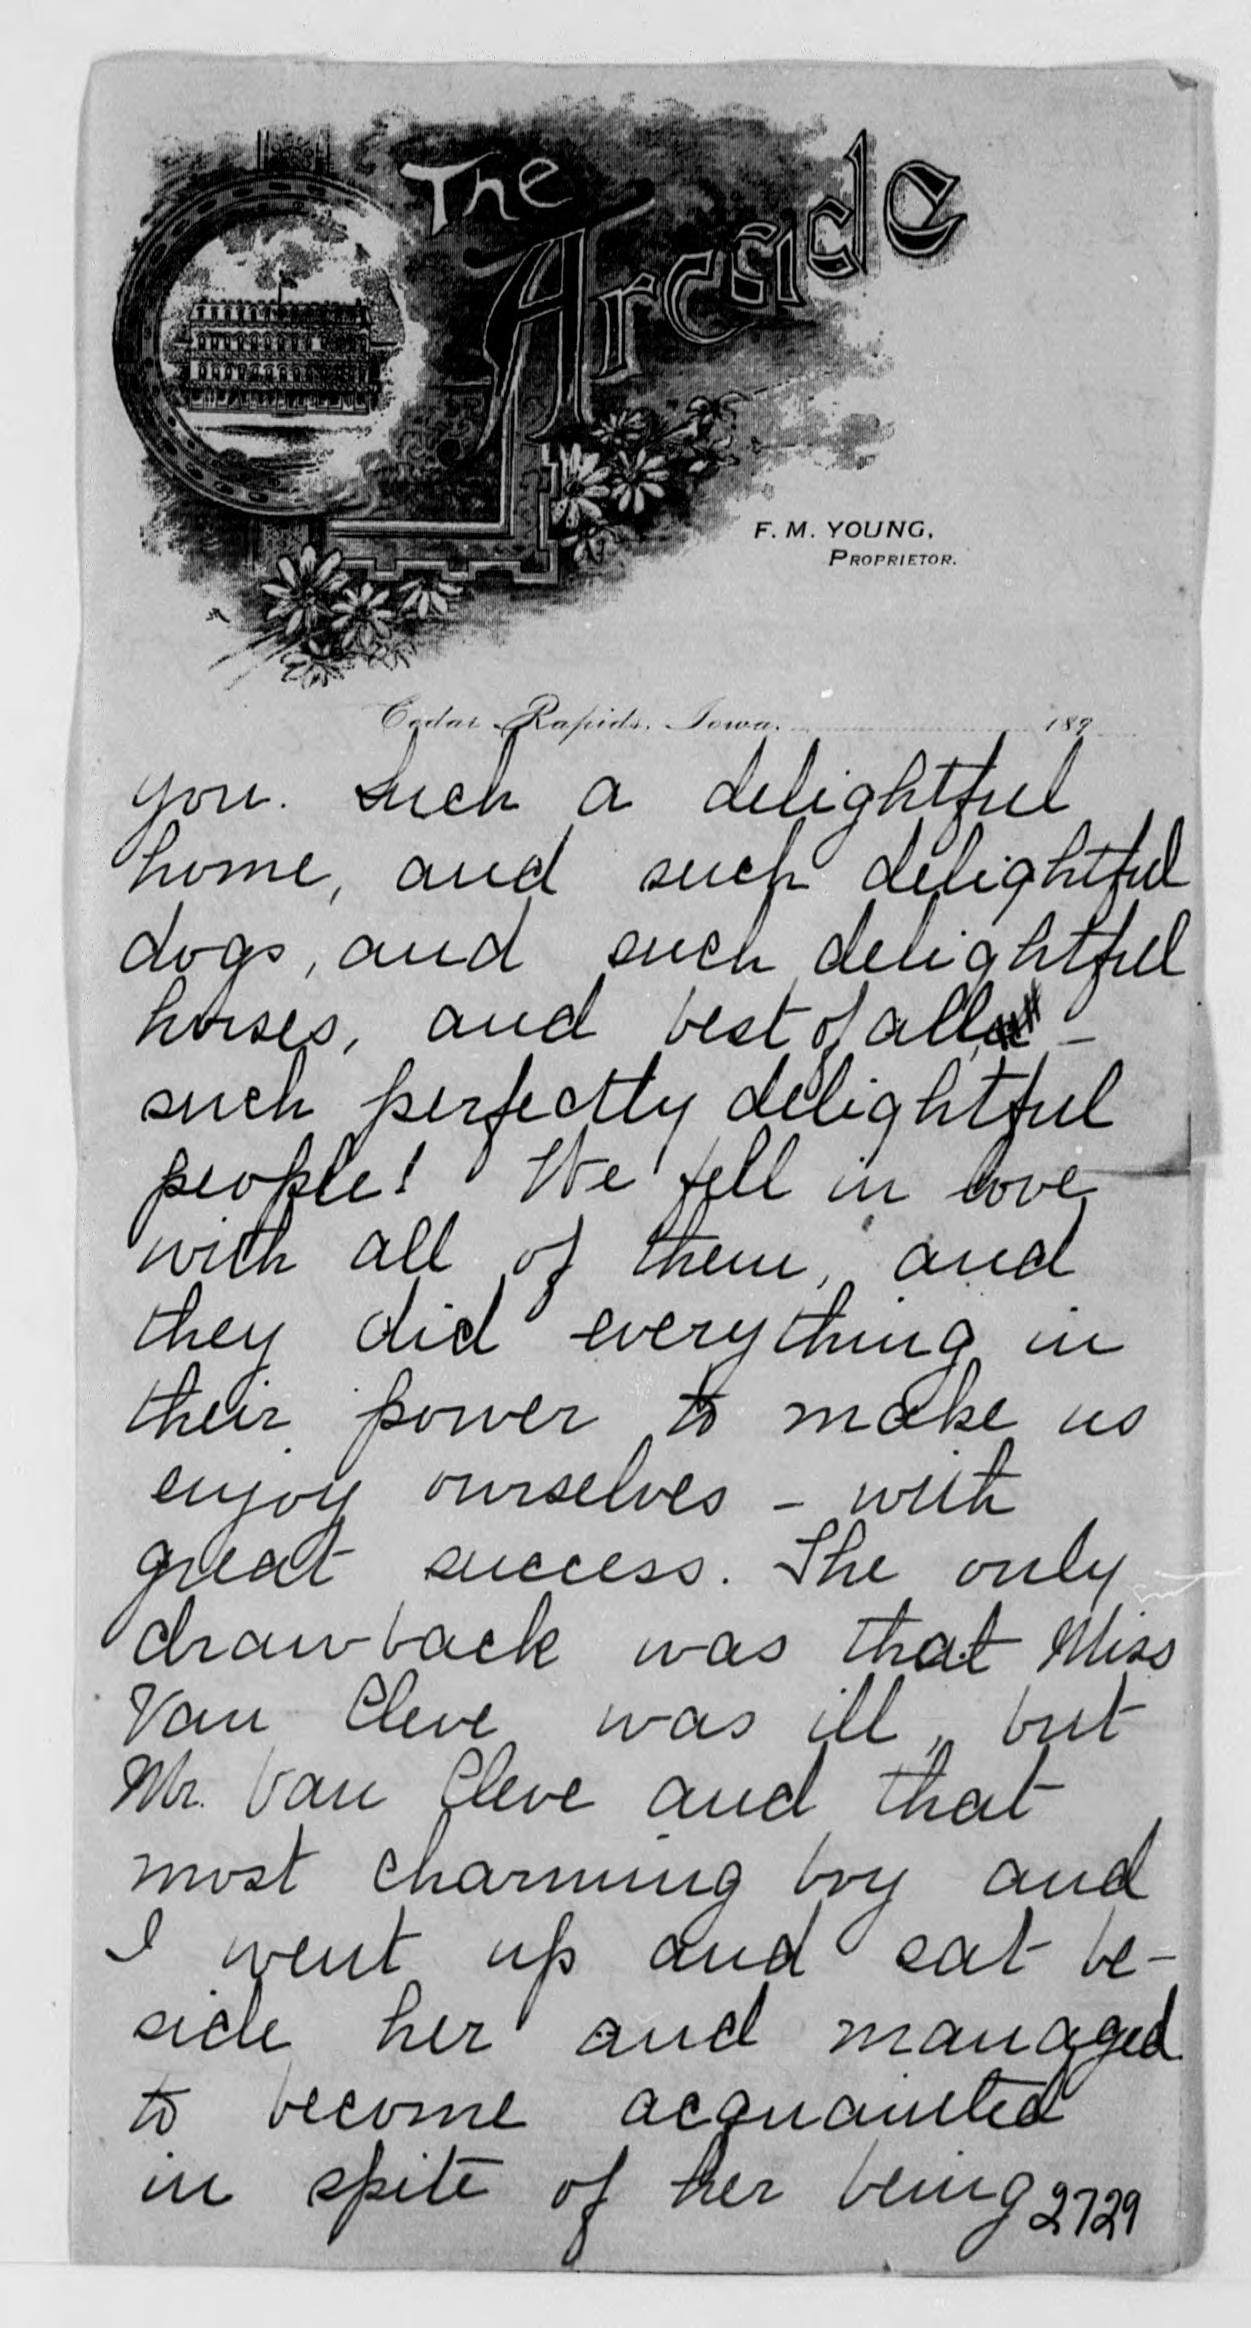 The
Arcade
F. M. YOUNG,
PROPRIETOR.
Cedar Rapids, Iowa. 189
you. Such a delightful
home, and such delightful
dogs, and such delightful
horses, and best of all –
such perfectly delightful
people! We fell in love
with all of them, and
they did everything in
their power to make us
enjoy ourselves – with
great success. The only
drawback was that Miss
Van Cleve was ill, but
Mr. Van Cleve and that
most charming boy and
I went up and sat be-
side her and managed
to become acquainted
in spite of her being
2729